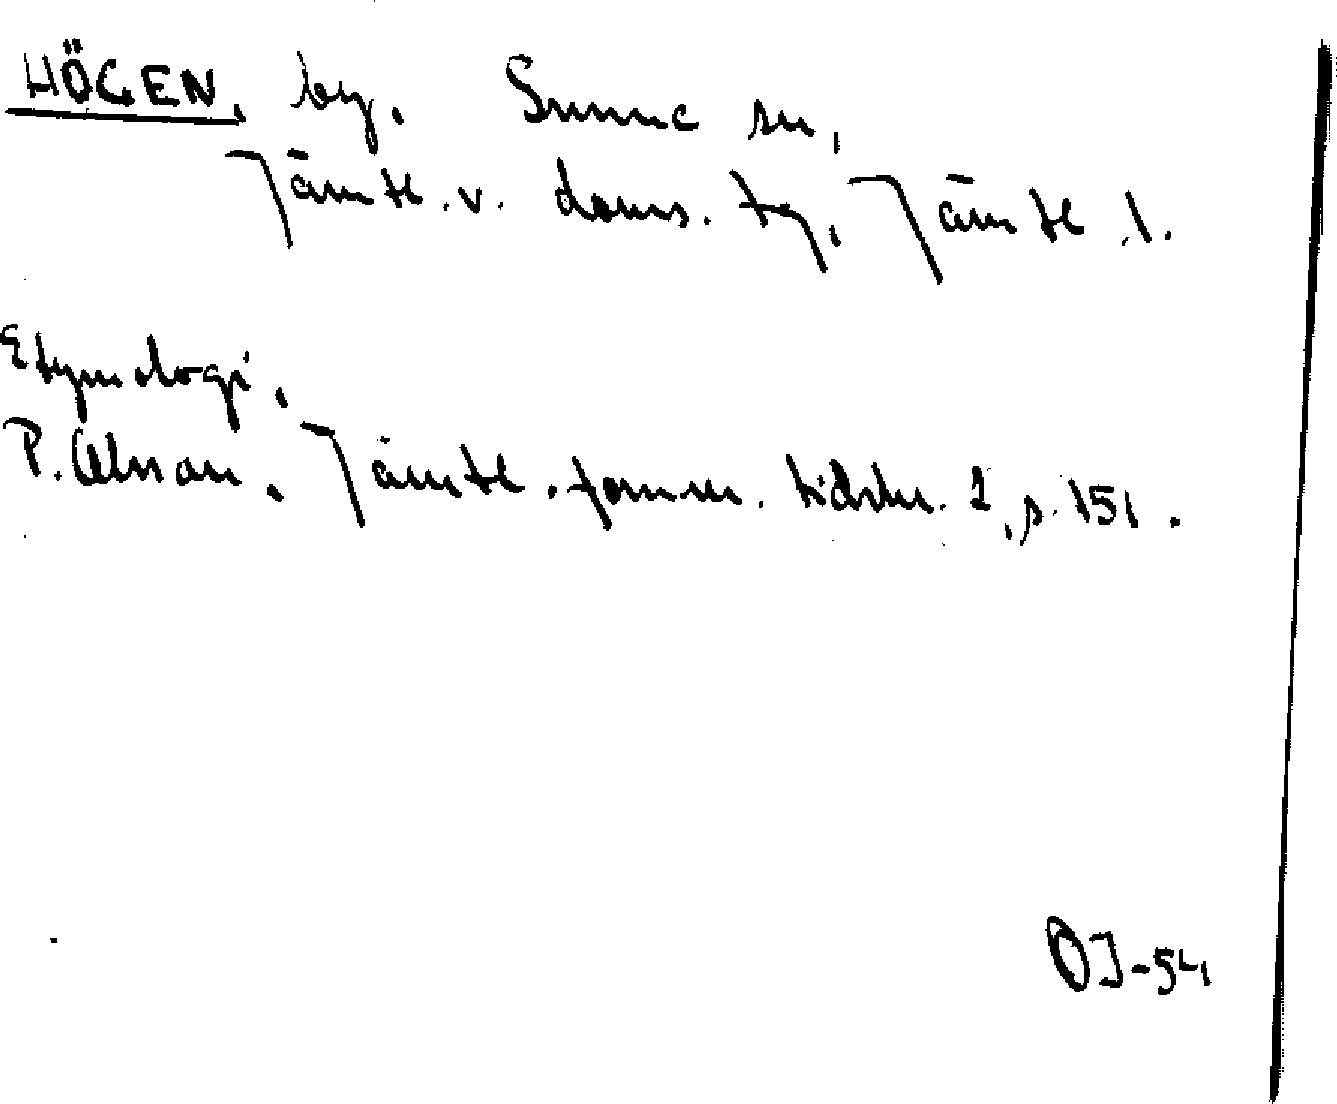 HÖGEN, by. Sunne sn,
Jämtl. v. doms. tg, Jämtl. l.
Etymologi.
P. Olsson, Jämtl. fornm. tidskr. 1, s. 151.
OJ-54